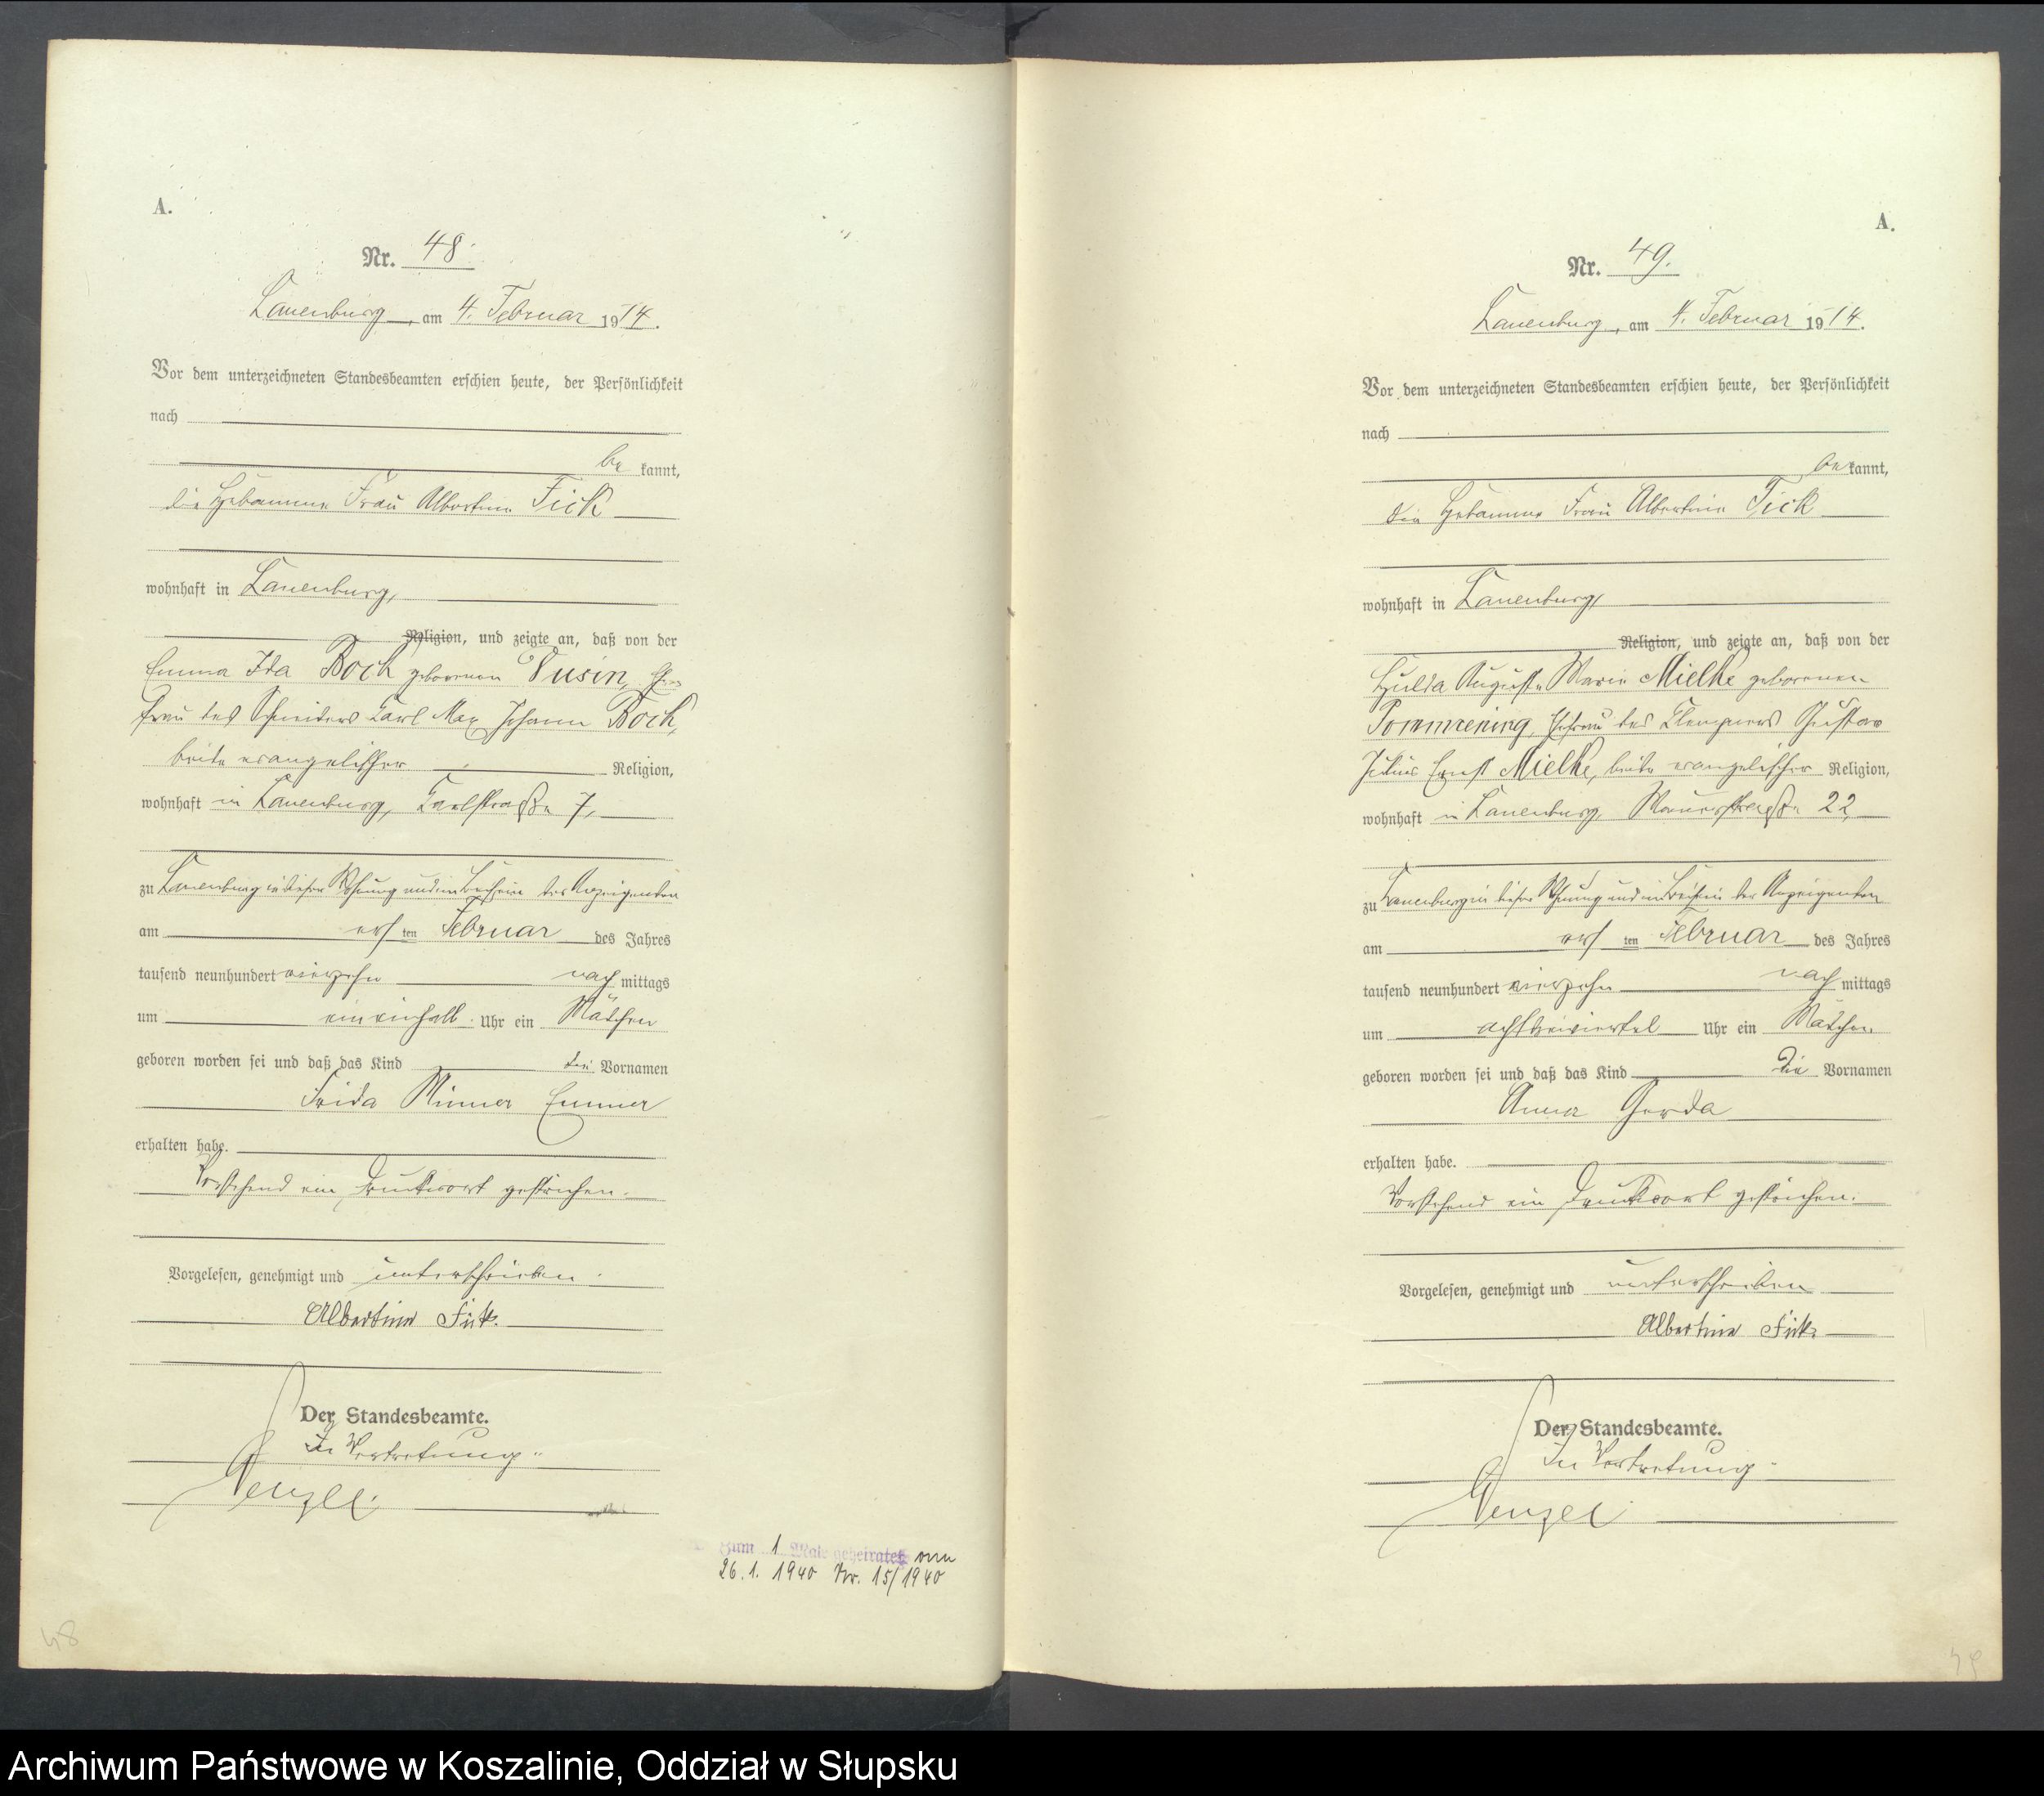 A.
Nr. 48.
Lauenburg, am 4. Februar 1914.
Vor dem unterzeichneten Standesbeamten erschien heute, der Persönlichkeit
nach
bekannt,
die Hebamme Frau Albertine Fick
wohnhaft in Lauenburg,
Religion, und zeigte an, daß von der
Emma Ida Bock geborenen Dusin, Ehe-
frau des Schneiders Karl Max Johann Bock,
beide evangelischer Religion,
wohnhaft in Lauenburg, Karlstraße 7,
zu Lauenburg in dieser Wohnung und im Beisein der Anzeigenden
am ersten Februar des Jahres
tausend neunhundert vierzehn nachmittags
um eineinhalb Uhr ein Mädchen
geboren worden sei und daß das Kind die Vornamen
Frida Minna Emma
erhalten habe.
Vorstehend ein Druckwort gestrichen.
Vorgelesen, genehmigt und unterschrieben.
Albertine Fick.
Der Standesbeamte.
In Vertretung.
Wenzel.
Zum 1 Male geheiratet am
26.1.1940 Nr. 15/1940
48
A.
Nr. 49.
Lauenburg, am 4. Februar 1914.
Vor dem unterzeichneten Standesbeamten erschien heute, der Persönlichkeit
nach
bekannt,
die Hebamme Frau Albertine Fick
wohnhaft in Lauenburg,
Religion, und zeigte an, daß von der
Hulda Auguste Marie Mielke geborenen
Pommrening, Ehefrau des Klempners Gustav
Julius Ernst Mielke, beide evangelischer Religion,
wohnhaft in Lauenburg, Mauerstraße 22,
zu Lauenburg in dieser Wohnung und im Beisein der Anzeigenden
am ersten Februar des Jahres
tausend neunhundert vierzehn nachmittags
um achtdreiviertel Uhr ein Mädchen
geboren worden sei und daß das Kind die Vornamen
Anna Gerda
erhalten habe.
Vorstehend ein Druckwort gestrichen.
Vorgelesen, genehmigt und unterschrieben
Albertine Fick
Der Standesbeamte.
In Vertretung.
Wenzel
49
Archiwum Państwowe w Koszalinie, Oddział w Słupsku